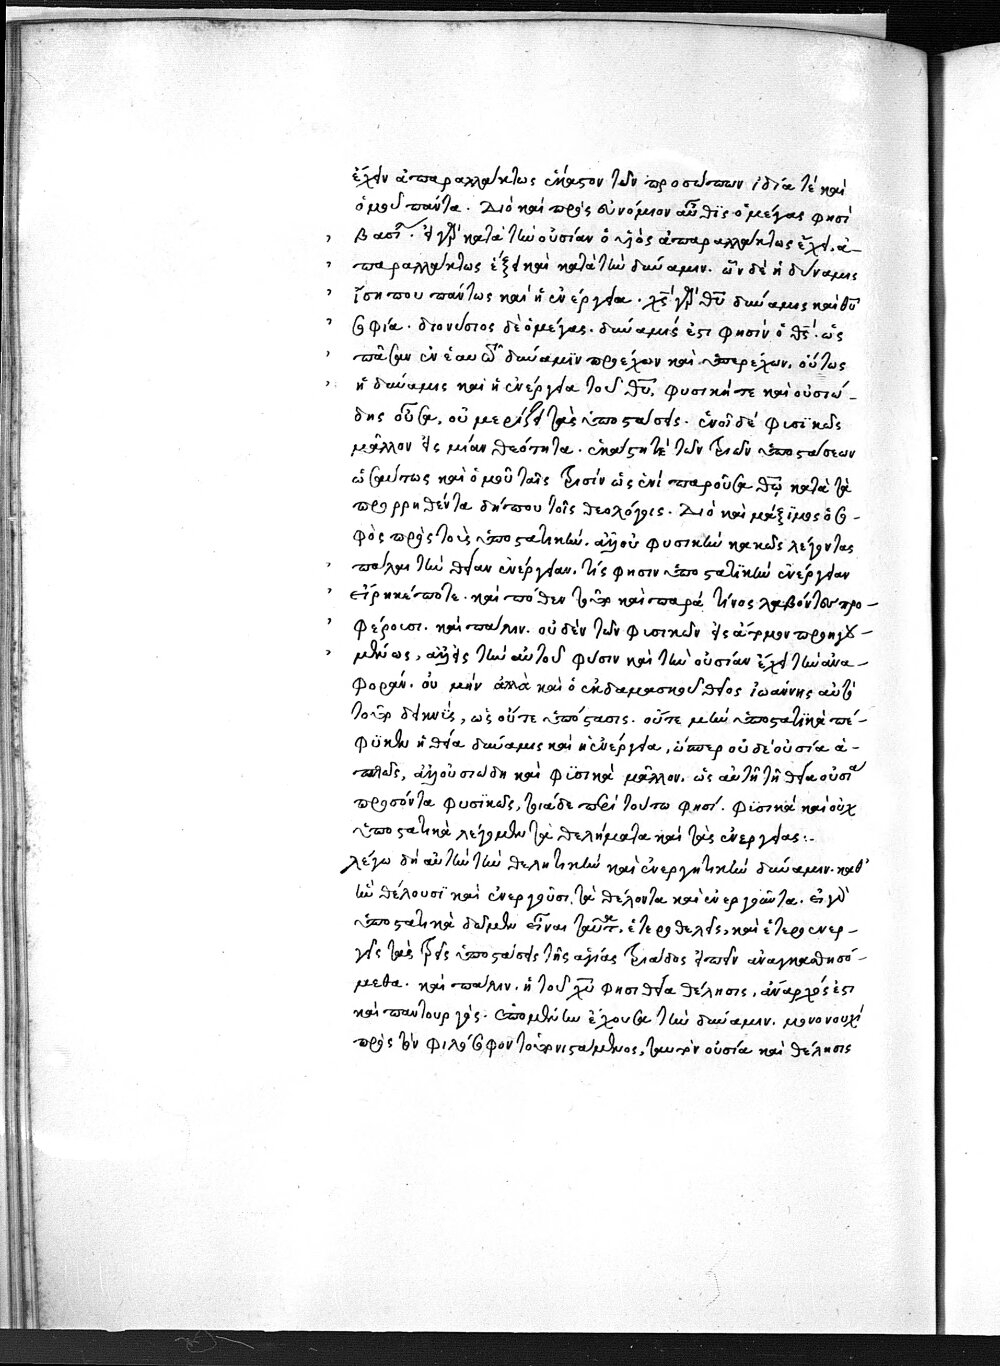 ἔχειν ἀπαραλλάκτως ἕκαστον τῶν προσώπων ἰδία τὲ καὶ
ὁμοῦ πάντα. Διὸ καὶ πρὸς εὐνόμιον αὖθις ὁ μέγας φησὶ
βασίλ. εἰ γὰρ κατὰ τὴν οὐσίαν ὁ υἱὸς ἀπαραλλάκτως ἔχει, ἀ-
παραλλάκτως ἕξει καὶ κατὰ τὴν δύναμιν. ὧν δὲ ἡ δύναμις
ἴση που πάντως καὶ ἡ ἐνέργεια. χς γὰρ θυ δύναμις καὶ θυ
σοφία. διονύσιος δὲ ὁ μέγας. δύναμίς ἐστι φησὶν ὁ θς. ὡς
πᾶσαν ἐν ἑαυτῶ δύναμιν προέχων καὶ ὑπερέχων. οὕτως
ἡ δύναμις καὶ ἡ ἐνέργεια τοῦ θυ, φυσική τε καὶ οὐσιώ-
δης οὖσα, οὐ μερίζει τὰς ὑποστάσεις. ἑνοῖ δὲ φυσικῶς
μᾶλλον εἰς μίαν θεότητα. ἑκάστη τὲ τῶν τριῶν ὑποστάσεων
ὡσαύτως καὶ ὁμοῦ ταῖς τρισὶν ὡς ἑνὶ παροῦσα θῶ κατὰ τὰ
προρρηθέντα δήπου τοῖς θεολόγοις. Διὸ καὶ μάξιμος ὁ σο-
φὸς πρὸς τοὺς ὑποστατικὴν, ἀλλ' οὐ φυσικὴν κακῶς λέγοντας
πάλαι τὴν θείαν ἐνέργειαν, τίς φησιν ὑποστατικὴν ἐνέργειαν
εἴρηκέ ποτε. καὶ πόθεν τοῦτο καὶ παρά τίνος λαβόντες προ-
φέρουσι. καὶ πάλιν. οὐδὲν τῶν φυσικῶν εἰς ἄτομον προηγου-
μένως, ἀλλ' εἰς τὴν αὐτοῦ φύσιν καὶ τὴν οὐσίαν ἔχει τὴν ἀνα-
φοράν. οὐ μὴν ἀλλὰ καὶ ὁ ἐκ δαμασκοῦ θεῖος ἰωάννης αὐτὸ
τοῦτο δεικνὺς, ὡς οὔτε ὑπόστασις. οὔτε μὴν ὑποστατικὰ πέ-
φυκεν ἡ θεία δύναμις καὶ ἡ ἐνέργεια, ὥσπερ οὐδὲ οὐσία ἁ-
πλῶς, ἀλλ' οὐσιώδη καὶ φυσικὰ μᾶλλον. ὡς αὐτῆ τῆ θεία οὐσία
προσόντα φυσικῶς, τοιάδε περὶ τούτου φησί. φυσικὰ καὶ οὐχ
ὑποστατικὰ λέγομεν τὰ θελήματα καὶ τὰς ἐνεργείας:-
λέγω δὴ αὐτὴν τὴν θελητικὴν καὶ ἐνεργητικὴν δύναμιν. καθ'
ἣν θέλουσι καὶ ἐνεργοῦσι, τὰ θέλοντα καὶ ἐνεργοῦντα. εἰ γὰρ
ὑποστατικὰ δῶμεν εἶναι ταῦτα, ἑτεροθελεῖς, καὶ ἑτεροενερ-
γεῖς τὰς τρεῖς ὑποστάσεις τῆς ἁγίας τριάδος εἰπεῖν ἀναγκασθησό-
μεθα. καὶ πάλιν. ἡ τοῦ χυ φησὶ θεία θέλησις, ἄναρχός ἐστι
καὶ παντουργὸς. ἑπομένην ἔχουσα τὴν δύναμιν. μονονουχὶ
πρὸς τὸν φιλόσοφον τοῦτο ἐνιστάμενος, ταυτὸν οὐσία καὶ θέλησις